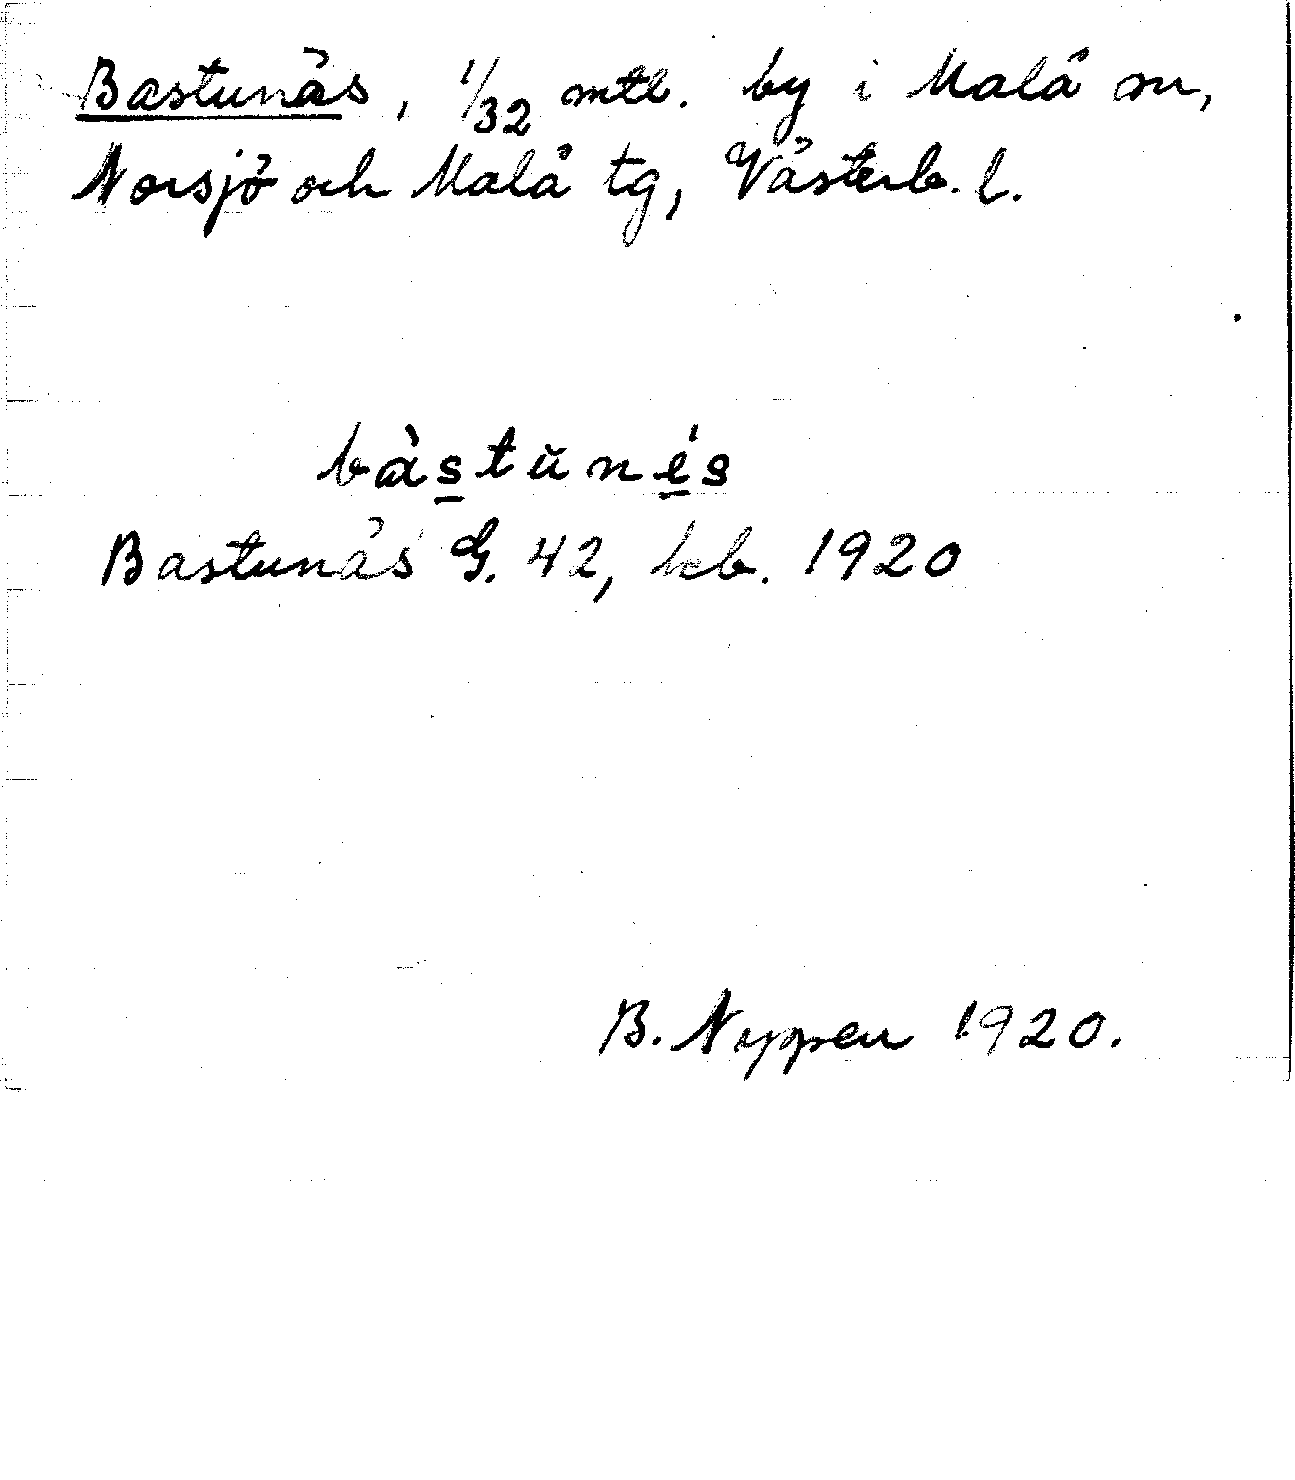 Bastunäs, 1/32 mtl. by i Malå sn,
Norsjö och Malå tg, Västerb. l.
bàstŭnés
Bastunäs G. 42, kb. 1920
B. Nyppen 1920.